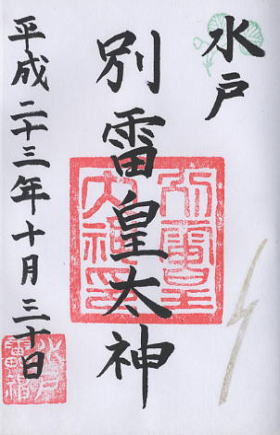 水戸
別雷皇太神
平成二十三年十月三十日
別雷皇
太神印